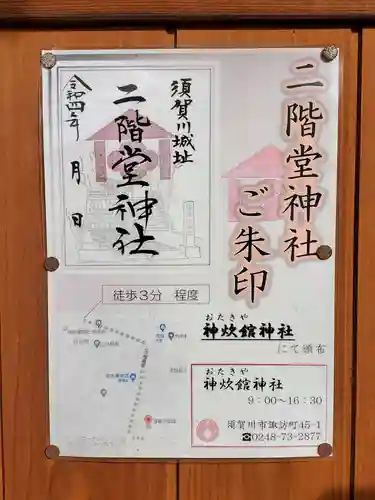 二階堂神社
ご朱印
須賀川城址
二階堂神社
令和四年 月 日
徒歩3分 程度
おたきや
神炊館神社
にて頒布
おたきや
神炊館神社
9:00~16:30
須賀川市諏訪町45-1
☎0248-73-2877